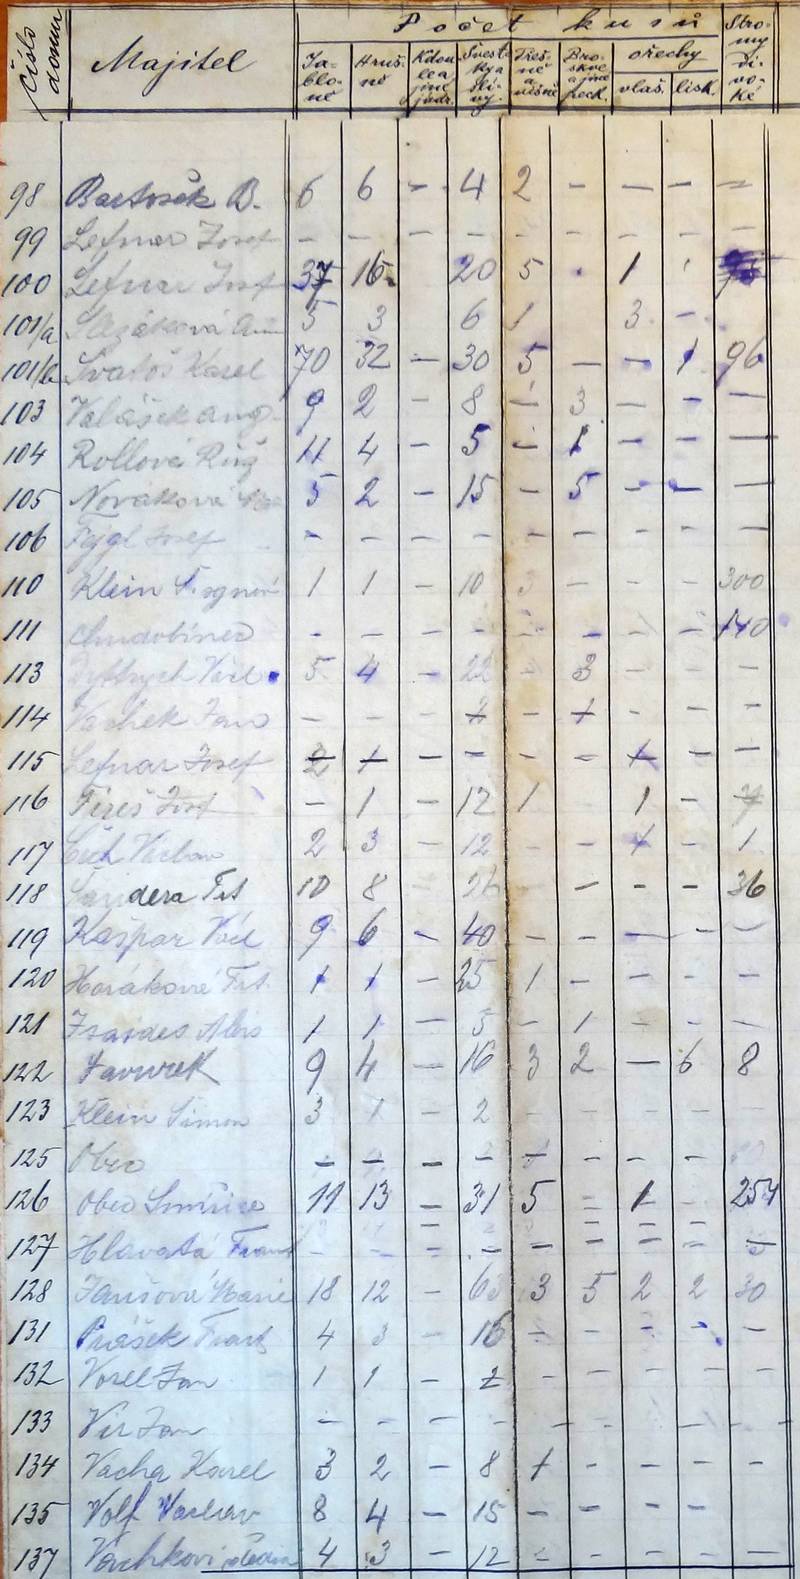 Číslo domu Majitel Počet kusů
Jabloně Hrušně Kdoule a jiné jádr. Švestky a slívy Třešně a višně Broskve a jiné peck. ořechy vlaš. lísk. Stromy divoké
98 Bartošek B. 6 6 - 4 2 - - - -
99 Lefnar Josef - - - - - - - - -
100 Lefnar Josef 37 16 20 5 1
101/a 5 3 6 1 3 -
101/b Svatoš Karel 70 32 - 30 5 - - 1 96
103 Valášek Aug. 9 2 - 8 - 3 - - -
104 Rollová Růž 11 4 - 5 - 1 - - -
105 Nováková 5 2 - 15 - 5 - - -
106 Fejgl Josef - - - - - - - - -
110 Klein 1 1 - 10 3 - - - 300
111 Chudobinec - - - - - - - - 140
113 Václ. 5 4 - 22 - 3 - - -
114 Vachek Jan - - - 2 - 1 - - -
115 Lefnar Josef 2 1 - - - - 1 - -
116 Fireš Josef - 1 - 12 1 1 -
117 Čech Václav 2 3 - 12 - - 1 - 1
118 Frt 10 8 - 26 - - - 36
119 Kašpar Václ 9 6 - 40 - - - - -
120 Horáková Frt. 1 1 - 25 1 - - - -
121 1 1 - 5 - 1 - - -
122 Lavurek 9 4 - 16 3 2 - 6 8
123 Klein Simon 3 1 - 2 - - - - -
125 Obec - - - - 1 - - -
126 Obec Smiřice 11 13 - 31 5 - 1 - 254
127 Hlavatá Frant - - - - - - - -
128 Janšová Marie 18 12 - 63 3 5 2 2 30
131 Prášek Frant 4 3 - 16 - - - - -
132 Vorel Jan 1 1 - 2 - - - - -
133 Vir Jan - - - - - - - - -
134 Vacha Karel 3 2 - 8 1 - - - -
135 Wolf Waclav 8 4 - 15 - - - -
137 4 3 - 12 - - - - -